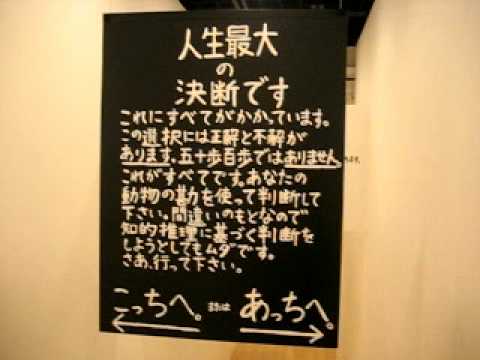 人生最大
の
決断です
これにすべてがかかっています。
この選択には正解と不解が
あります。五十歩百歩ではありません
これがすべてです。あなたの
動物の勘を使って判断して
下さい。間違いのもとなので
知的推理に基づく判断を
しようとしてもムダです。
さあ、行って下さい。
こっちへ。または あっちへ。